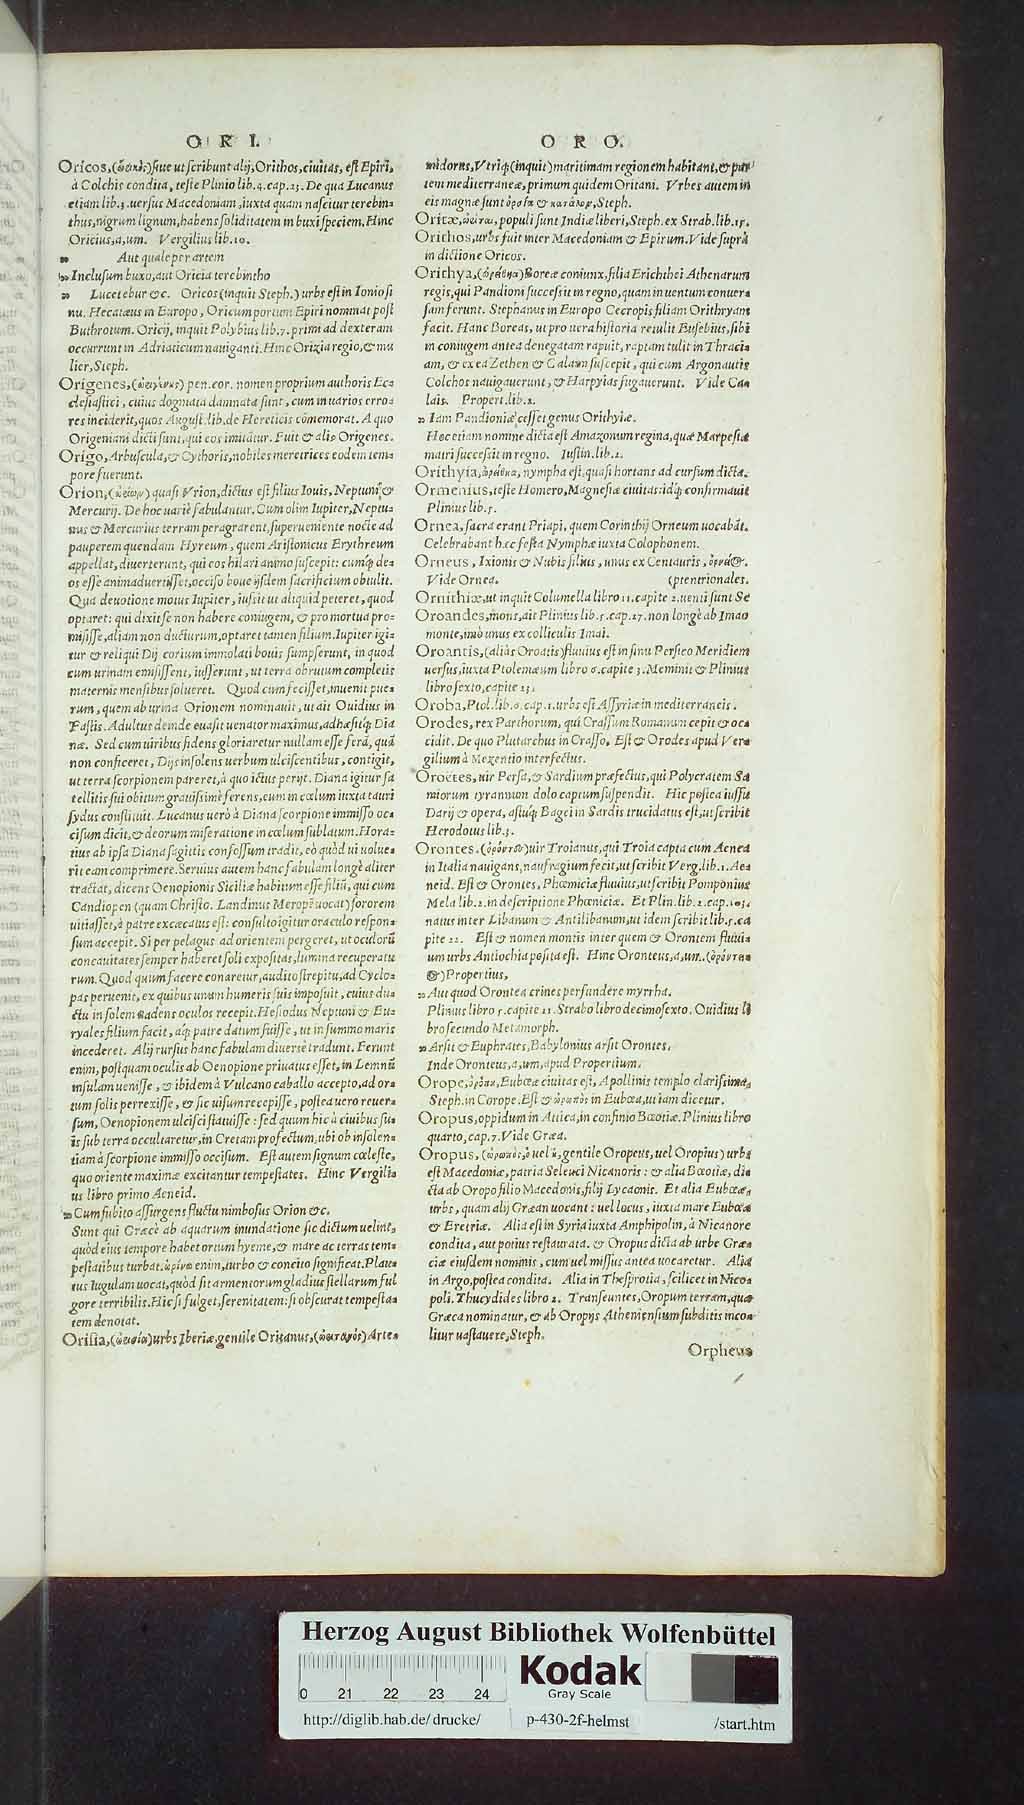 ORI.
Oricos, (ὤρικος) siue ut scribunt alij, Orithos, ciuitas, est Epiri,
à Colchis condita, teste Plinio lib.4.cap.23. De qua Lucanus
etiam lib.3. uersus Macedoniam, iuxta quam nascitur terebin=
thus, nigrum lignum, habens soliditatem in buxi speciem. Hinc
Oricius, a, um. Vergilius lib.10.
Aut quale per artem
Inclusum buxo, aut Oricia terebintho
Lucet ebur &c. Oricos (inquit Steph.) urbs est in Ionio si
nu. Hecatæus in Europo, Oricum portum Epiri nominat post
Buthrotum. Oricij, inquit Polybius lib.7. primi ad dexteram
occurrunt in Adriaticum nauiganti. Hinc Orizia regio, & mu
lier, Steph.
Origenes, (ὠριγένης) pen. cor. nomen proprium authoris Ecc
clesiastici, cuius dogmata damnata sunt, cum in uarios erro=
res inciderit, quos August. lib. de Hereticis cōmemorat. A quo
Origeniani dicti sunt, qui eos imitātur. Fuit & alius Origenes.
Origo, Arbuscula, & Cythoris, nobiles meretrices eodem tem=
pore fuerunt.
Orion, (ὠρίων) quasi Vrion, dictus est filius Iouis, Neptuni, &
Mercurij. De hoc uariè fabulantur. Cum olim Iupiter, Neptu=
nus & Mercurius terram peragrarent, superueniente nocte ad
pauperem quendam Hyreum, quem Aristonicus Erythreum
appellat, diuerterunt, qui eos hilari animo suscepit: cumq́ue de=
os esse animaduertisset, occiso boue ijsdem sacrificium obtulit.
Qua deuotione motus Iupiter, iussit ut aliquid peteret, quod
optaret: qui dixit se non habere coniugem, & pro mortua pro=
misisse, aliam non ducturum, optaret tamen filium. Iupiter igi=
tur & reliqui Dij corium immolati bouis sumpserunt, in quod
cum urinam emisissent, iusserunt, ut terra obrutum completis
maternis mensibus solueret. Quod cum fecisset, inuenit pue=
rum, quem ab urina Orionem nominauit, ut ait Ouidius in
Fastis. Adultus deinde euasit uenator maximus, adhæsitq́ue Dia
næ. Sed cum uiribus fidens gloriaretur nullam esse ferā, quā
non conficeret, Dijs insolens uerbum ulciscentibus, contigit,
ut terra scorpionem pareret, à quo ictus perijt. Diana igitur sa
tellitis sui obitum grauissimè ferens, cum in cœlum iuxta tauri
sydus constituit. Lucanus uerò à Diana scorpione immisso oc=
cisum dicit, & deorum miseratione in cœlum sublatum. Hora=
tius ab ipsa Diana sagittis confossum tradit, eò quòd ui uolue=
rit eam comprimere. Seruius autem hanc fabulam longè aliter
tractat, dicens Oenopionis Siciliæ habitum esse filiū, qui cum
Candiopen (quam Christo. Landinus Meropē uocat) sororem
uitiasset, à patre excæcatus est: consulto igitur oraculo respon=
sum accepit. Si per pelagus ad orientem pergeret, ut oculorū
concauitates semper haberet soli expositas, lumina recuperatu
rum. Quod quum facere conaretur, audito strepitu, ad Cyclo=
pas peruenit, ex quibus unum humeris suis imposuit, cuius du=
ctu in solem uadens oculos recepit. Hesiodus Neptuni & Eu=
ryales filium facit, aq́ue patre datum fuisse, ut in summo maris
incederet. Alij rursus hanc fabulam diuersè tradunt. Ferunt
enim, postquam oculis ab Oenopione priuatus esset, in Lemnū
insulam uenisse, & ibidem à Vulcano caballo accepto, ad or=
tum solis perrexisse, & sic uisum recepisse, postea uero reuer=
sum, Oenopionem ulcisci statuisse: sed quum hic à ciuibus su=
is sub terra occultaretur, in Cretam profectum, ubi ob insolen=
tiam à scorpione immisso occisum. Est autem signum cœleste,
quo oriente maximæ excitantur tempestates. Hinc Vergili=
us libro primo Aeneid.
Cum subito assurgens fluctu nimbosus Orion &c.
Sunt qui Græcè ab aquarum inundatione sic dictum uelint,
quòd eius tempore habet ortum hyeme, & mare ac terras tem=
pestatibus turbat. ὀρίνω enim, turbo & concito significat. Plau=
tus Iugulam uocat, quòd sit armentorum gladius stellarum ful
gore terribilis. Hic si fulget, serenitatem: si obscurat tempesta=
tem denotat.
Orisia, (ὠρισία) urbs Iberiæ, gentile Oritanus, (ὠριτανός) Arte=
ORO.
midorus, Vtriq́ue (inquit) maritimam regionem habitant, & par
tem mediterraneæ, primum quidem Oritani. Vrbes autem in
eis magnæ sunt ὀρσία & κατάλων, Steph.
Oritæ, ὠρῖται, populi sunt Indiæ liberi, Steph. ex Strab. lib.15.
Orithos, urbs fuit inter Macedoniam & Epirum. Vide suprà
in dictione Oricos.
Orithya, (ὀρείθυα) Boreæ coniunx, filia Erichthei Athenarum
regis, qui Pandioni successit in regno, quam in uentum conuer=
sam ferunt. Stephanus in Europo Cecropis filiam Orithryam
facit. Hanc Boreas, ut pro uera historia retulit Eusebius, sibi
in coniugem antea denegatam rapuit, raptam tulit in Thraci=
am, & ex ea Zethen & Calain suscepit, qui cum Argonautis
Colchos nauigauerunt, & Harpyias fugauerunt. Vide Ca=
lais. Propert. lib.2.
Iam Pandioniæ cesset genus Orithyiæ.
Hoc etiam nomine dicta est Amazonum regina, quæ Marpesiæ
matri successit in regno. Iustin. lib.2.
Orithyia, ὀρείθυια, nympha est, quasi hortans ad cursum dicta.
Ormenius, teste Homero, Magnesiæ ciuitas: idq́ue confirmauit
Plinius lib.5.
Ornea, sacra erant Priapi, quem Corinthij Orneum uocabāt.
Celebrabant hæc festa Nymphæ iuxta Colophonem.
Orneus, Ixionis & Nubis filius, unus ex Centauris, ὀρνεύς.
Vide Ornea. (ptentrionales.
Ornithiæ, ut inquit Columella libro 11. capite 2. uenti sunt Se
Oroandes, mons, ait Plinius lib.5. cap.27. non longè ab Imao
monte, imò unus ex colliculis Imai.
Oroantis, (aliàs Oroatis) fluuius est in sinu Persico Meridiem
uersus, iuxta Ptolemæum libro 6. capite 3. Meminit & Plinius
libro sexto, capite 23.
Oroba, Ptol. lib.6. cap.1. urbs est Assyriæ in mediterraneis.
Orodes, rex Parthorum, qui Crassum Romanum cepit & oc=
cidit. De quo Plutarchus in Crasso. Est & Orodes apud Ver=
gilium à Mezentio interfectus.
Oroetes, uir Persa, & Sardium præfectus, qui Polycratem Sa
miorum tyrannum dolo captum suspendit. Hic postea iussu
Darij & opera, astuq́ue Bagei in Sardis trucidatus est, ut scribit
Herodotus lib.3.
Orontes, (ὀρόντης) uir Troianus, qui Troia capta cum Aenea
in Italia nauigans, naufragium fecit, ut scribit Verg. lib.1. Ae=
neid. Est & Orontes, Phœniciæ fluuius, ut scribit Pomponius
Mela lib.1. in descriptione Phœniciæ. Et Plin. lib.2. cap.103.
natus inter Libanum & Antilibanum, ut idem scribit lib.5. ca
pite 22. Est & nomen montis inter quem & Orontem fluui=
um urbs Antiochia posita est. Hinc Oronteus, a, um. (ὀρόντει=
ος) Propertius,
Aut quod Orontea crines perfundere myrrha.
Plinius libro 5. capite 21. Strabo libro decimosexto. Ouidius li
bro secundo Metamorph.
Arsit & Euphrates, Babylonius arsit Orontes.
Inde Oronteus, a, um, apud Propertium.
Orope, ὀρόπη, Eubœæ ciuitas est, Apollinis templo clarissima,
Steph. in Corope. Est & ὠρωπός in Eubœa, ut iam dicetur.
Oropus, oppidum in Attica, in confinio Bœotiæ. Plinius libro
quarto, cap.7. Vide Græa.
Oropus, (ὠρωπὸς, ὁ uel ἡ, gentile Oropeus, uel Oropius) urbs
est Macedoniæ, patria Seleuci Nicanoris: & alia Bœotiæ, di=
cta ab Oropo filio Macedonis, filij Lycaonis. Et alia Eubœæ,
urbs, quam alij Græan uocant: uel locus, iuxta mare Eubœæ
& Eretriæ. Alia est in Syria iuxta Amphipolin, à Nicanore
condita, aut potius restaurata. & Oropus dicta ab urbe Græ=
ciæ eiusdem nominis, cum uel missus antea uocaretur. Alia
in Argo, postea condita. Alia in Thesprotia, scilicet in Nico=
poli. Thucydides libro 2. Transeuntes, Oropum terram, quæ
Græca nominatur, & ab Oropijs Atheniensium subditis inco=
litur uastauere, Steph.
Orpheus
Herzog August Bibliothek Wolfenbüttel
Kodak
Gray Scale
0 21 22 23 24
http://diglib.hab.de/drucke/ p-430-2f-helmst /start.htm